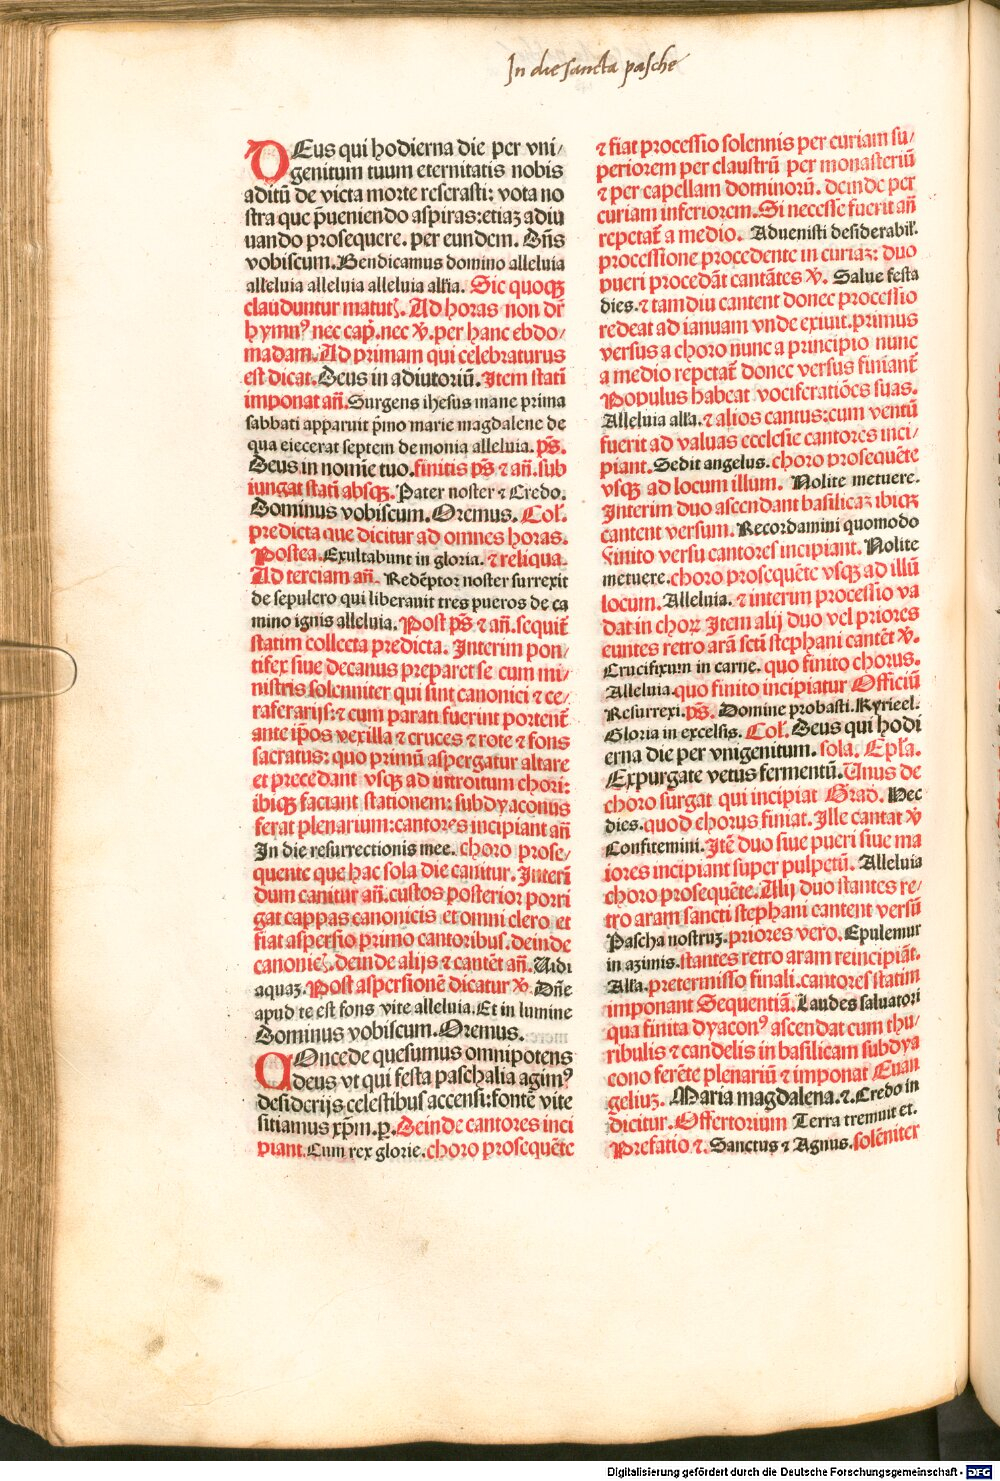 In die sancta pasche
DEus qui hodierna die per vni/
genitum tuum eternitatis nobis
aditū de victa morte reserasti: vota no
stra que p̄ueniendo aspiras: etiaꝫ adiu
uando prosequere. per eundem. Dn̄s
vobiscum. Bendicamus domino alleluia
alleluia alleluia alleluia all'ia. Sic quoqꝫ
clauduntur matutꝭ. Ad horas non dr̄
hymnꝰ nec cap̄. nec ℣. per hanc ebdo/
madam. Ad primam qui celebraturus
est dicat. Deus in adiutoriū. Item statī
imponat añ. Surgens ihesus mane prima
sabbati apparuit p̄mo marie magdalene de
qua eiecerat septem demonia alleluia. ps̄.
Deus in nomīe tuo. finitis ps̄ ⁊ añ. sub
iungat statī absqꝫ. Pater noster ⁊ Credo.
Dominus vobiscum. Oremus. Col'.
predicta que dicitur ad omnes horas.
Postea. Exultabunt in gloria. ⁊ reliqua.
Ad terciam añ. Redēptor noster surrexit
de sepulcro qui liberauit tres pueros de ca
mino ignis alleluia. Post ps̄ ⁊ añ. sequit̄
statim collecta predicta. Interim pon/
tifex siue decanus preparet se cum mi/
nistris solenniter qui sint canonici ⁊ ce/
raferarijs: ⁊ cum parati fuerint portent̄
ante ip̄os vexilla ⁊ cruces ⁊ rote ⁊ fons
sacratus: quo primū aspergatur altare
et precedant vsqꝫ ad introitum chori:
ibiqꝫ faciant stationem: subdyaconus
ferat plenarium: cantores incipiant añ
In die resurrectionis mee. choro prose/
quente que hac sola die canitur. Interī
dum canitur añ. custos posterior porri
gat cappas canonicis et omni clero et
fiat aspersio primo cantoribus. deinde
canonicꝭ. deinde alijs ⁊ cantēt añ. Uidi
aquaꝫ. Post aspersionē dicatur ℣. Dn̄e
apud te est fons vite alleluia. Et in lumine
Dominus vobiscum. Oremus.
COncede quesumus omnipotens
deus vt qui festa paschalia agimꝰ
desiderijs celestibus accensi: fontē vite
sitiamus xp̄m. p. Deinde cantores inci
piant. Cum rex glorie. choro prosequēte
⁊ fiat processio solennis per curiam su/
periorem per claustrū per monasteriū
⁊ per capellam dominorū. deinde per
curiam inferiorem. Si necesse fuerit añ
repetat̄ a medio. Aduenisti desiderabil'.
processione procedente in curiaꝫ: duo
pueri procedāt cantātes ℣. Salue festa
dies. ⁊ tamdiu cantent donec processio
redeat ad ianuam vnde exiuit. primus
versus a choro nunc a principio nunc
a medio repetat̄ donec versus finiant̄
Populus habeat vociferatiōes suas.
Alleluia all'a. ⁊ alios cantus: cum ventū
fuerit ad valuas ecclesie cantores inci/
piant. Sedit angelus. choro prosequēte
vsqꝫ ad locum illum. Nolite metuere.
Interim duo ascendant basilicaꝫ ibiqꝫ
cantent versum. Recordamini quomodo
Finito versu cantores incipiant. Nolite
metuere. choro prosequēte vsqꝫ ad illū
locum. Alleluia. ⁊ interim processio va
dat in choꝝ Item alij duo vel priores
euntes retro arā scti stephani cantēt ℣.
Crucifixum in carne. quo finito chorus.
Alleluia. quo finito incipiatur Officiū
Resurrexi. ps̄. Domine probasti. Kyrieel.
Gloria in excelsis. Col'. Deus qui hodi
erna die per vnigenitum. sola. Ep̄la.
Expurgate vetus fermentū. Unus de
choro surgat qui incipiat Grad. Hec
dies. quod chorus finiat. Ille cantat ℣
Confitemini. Itē duo siue pueri siue ma
iores incipiant super pulpetū. Alleluia
choro prosequēte. Alij duo stantes re/
tro aram sancti stephani cantent versū
Pascha nostruꝫ. priores vero. Epulemur
in azimis. stantes retro aram reincipiāt.
All'a. pretermisso finali. cantores statim
imponant Sequentiā. Laudes saluatori
qua finita dyaconꝰ ascendat cum thu/
ribulis ⁊ candelis in basilicam subdya
cono ferēte plenariū ⁊ imponat Euan
geliuꝫ. Maria magdalena. ⁊. Credo in
dicitur. Offertorium Terra tremuit et.
Prefatio ⁊. Sanctus ⁊ Agnus. solēniter
Digitalisierung gefördert durch die Deutsche Forschungsgemeinschaft - DFG